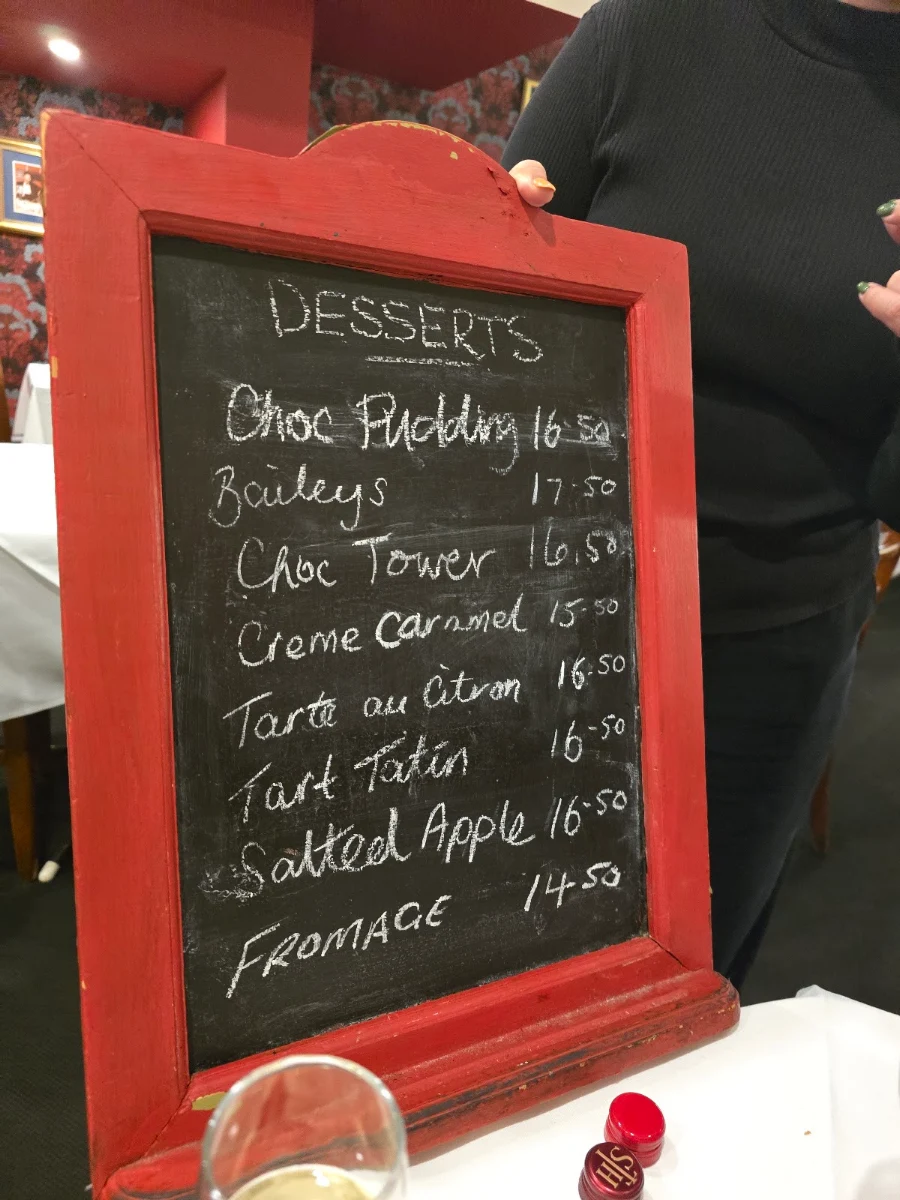 DESSERTS
Choc Pudding 16-50
Baileys 17-50
Choc Tower 16.50
Creme Caramel 15-50
Tarte au Citron 16-50
Tart Tatin 16-50
Salted Apple 16-50
FROMAGE 14-50
STH